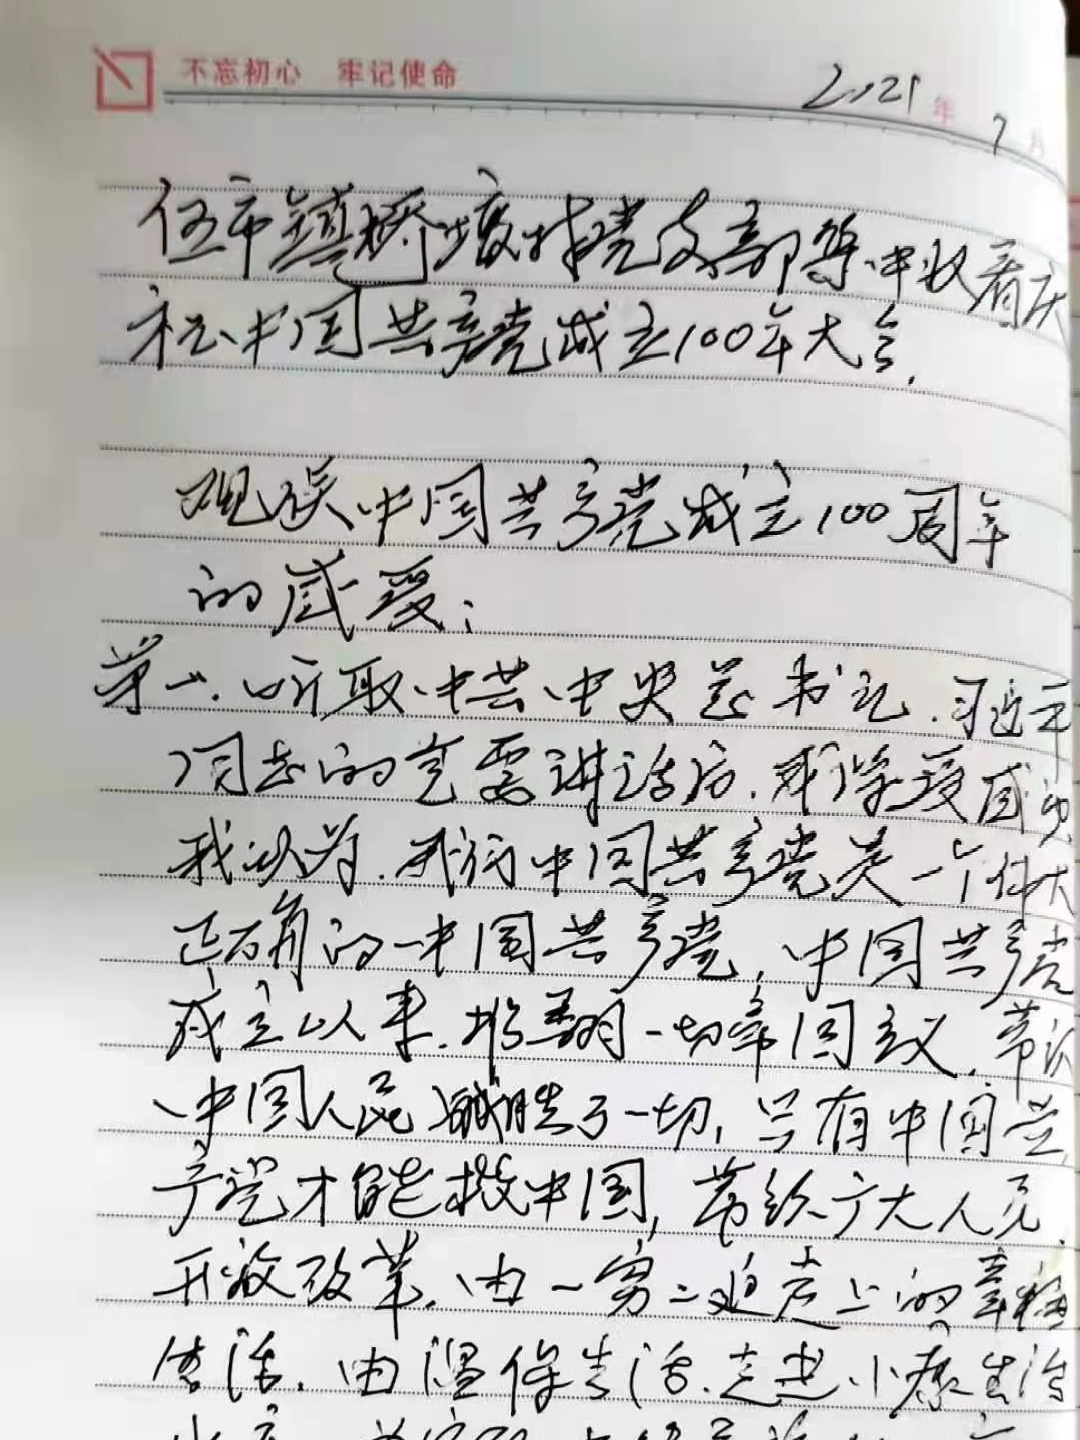 不忘初心 牢记使命
2021年7月
伍市镇桥坡村党支部集中收看庆
祝中国共产党成立100年大会.
观后中国共产党成立100周年
的感受:
第一.听取中共中央总书记.习近平
同志的重要讲话后.我深受感
我认为.我们中国共产党是一个伟大
正确的中国共产党,中国共产党
成立以来.推翻一切帝国主义.带领
中国人民战胜了一切,只有中国共
产党才能救中国,带领广大人民.
开放改革.由一穷二 走上的幸福
生活.由温保生活.走进小康生活